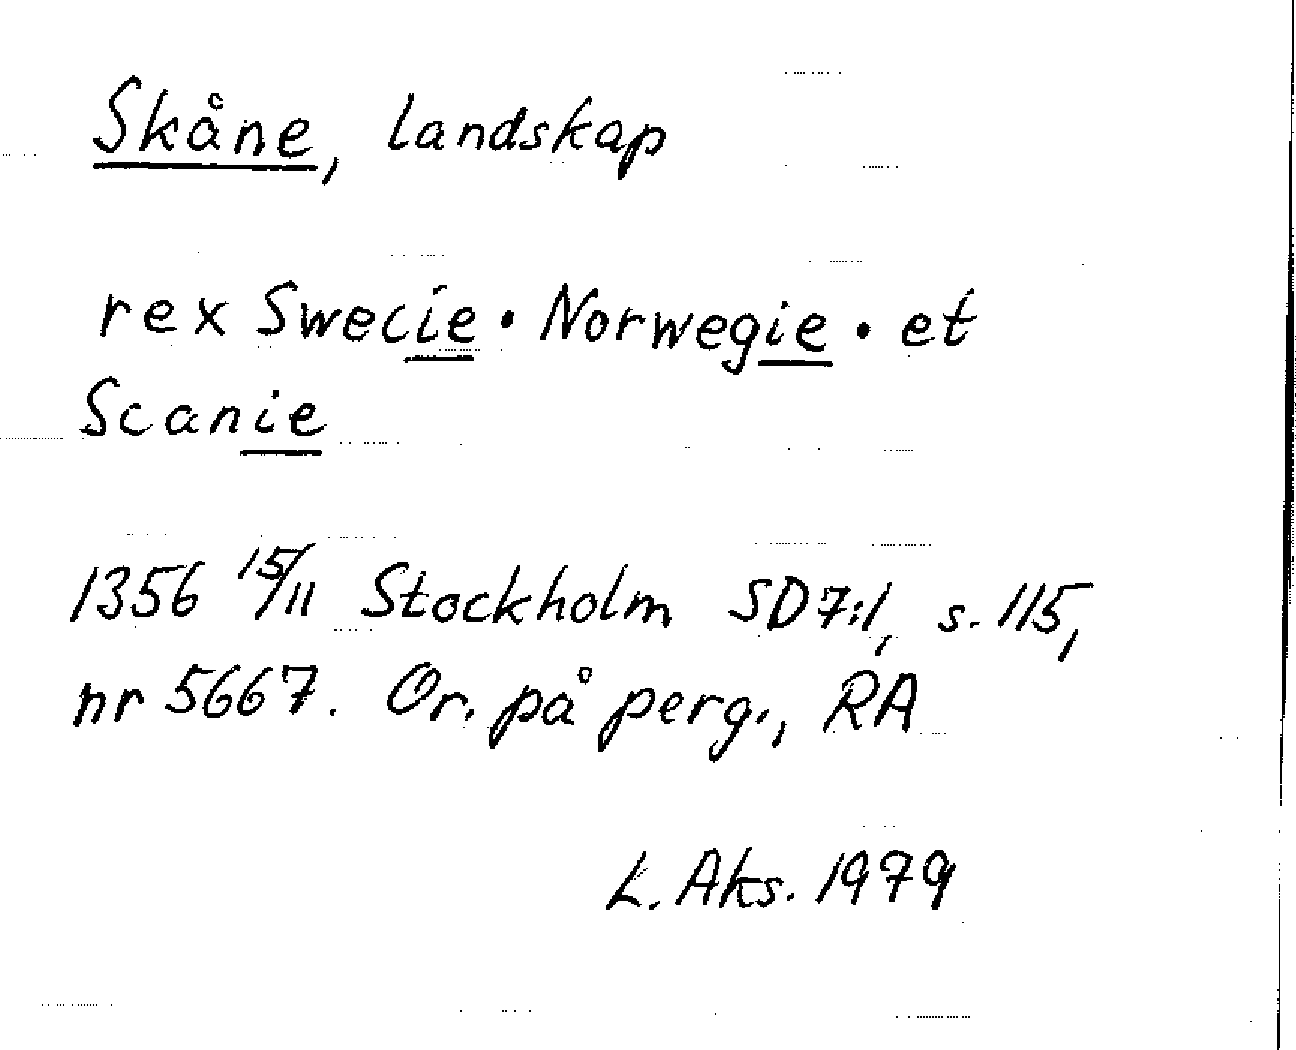 Skåne, landskap
rex Swecie · Norwegie · et
Scanie
1356 15/11 Stockholm SD 7:1, s. 115,
nr 5667. Or. på perg., RA
L. Aks. 1979